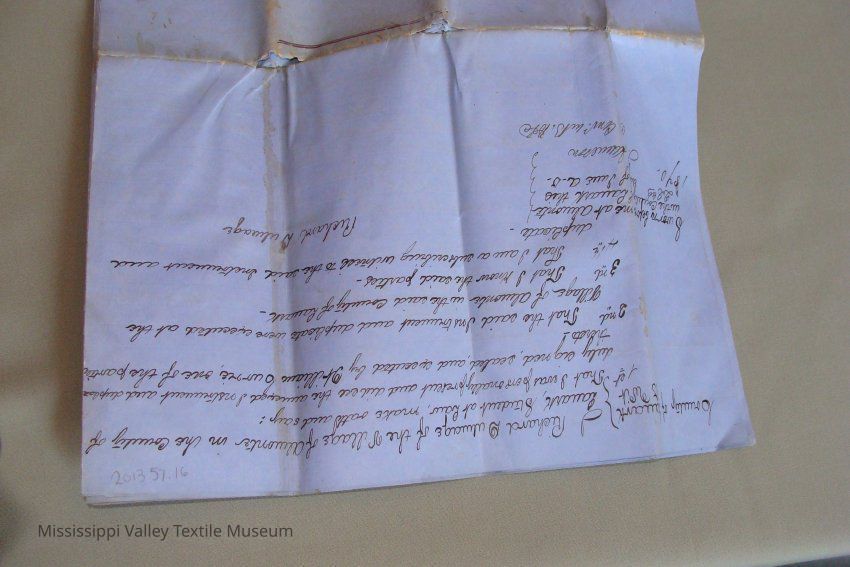 County of Lanark
To Wit
I Richard Dulmage of the Village of Almonte in the County of
Lanark, Student at Law, make oath and say:
1st That I was personally present and did see the annexed Instrument and
duly signed, sealed, and executed by William one of the parties
thereto!
2nd That the said Instrument and duplicate were executed at the
Village of Almonte in the said County of Lanark.
3rd That I know the said parties.
4th That I am a subscribing witness to the said Instrument and
duplicate.
Sworn before
me at Almonte
in the County
Lanark this
of June A.D.
187
Richard Dulmage
2013.57.16
Mississippi Valley Textile Museum